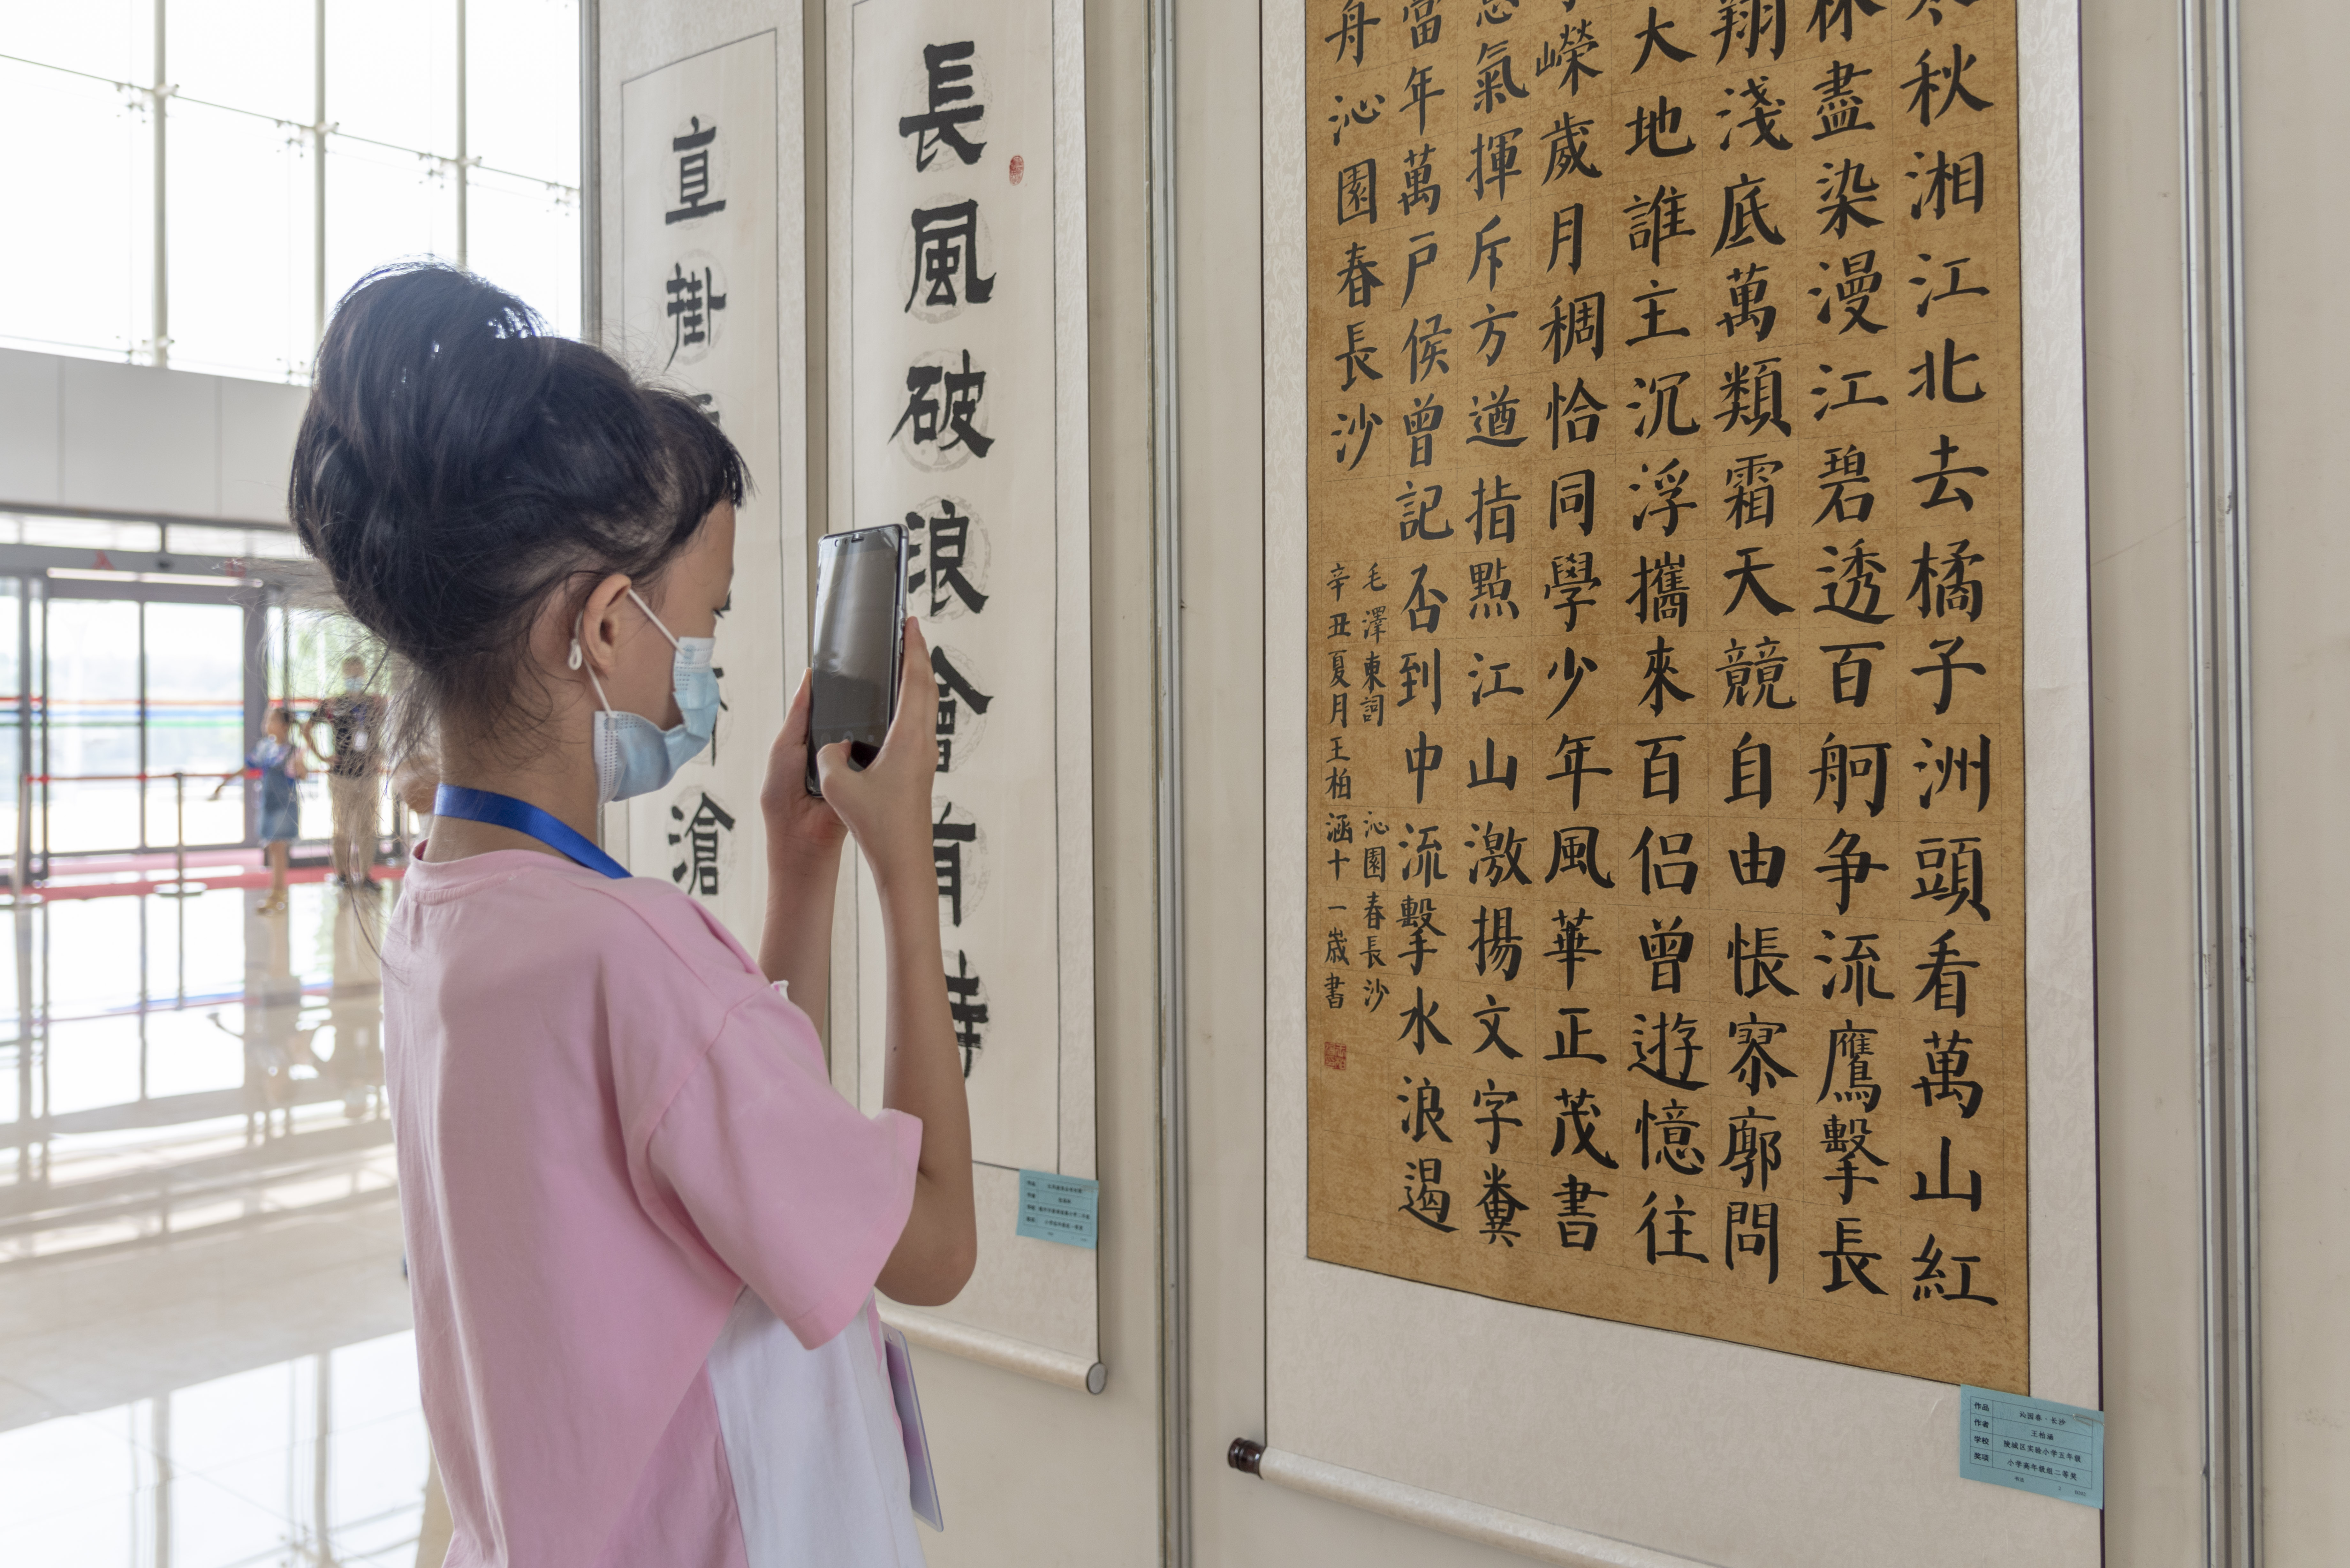 秋湘江北去橘子洲頭看萬山紅
林盡染漫江碧透百舸争流鷹擊長
翔淺底萬類霜天競自由悵寥廓問
大地誰主沉浮攜來百侣曾遊憶往
嶸歲月稠恰同學少年風華正茂書
氣揮斥方遒指點江山激揚文字糞
當年萬户侯曾記否到中流擊水浪遏
舟沁園春長沙
毛澤東詞 沁園春長沙
辛丑夏月王柏涵十一歲書
長風破浪會有時
直掛
滄
作品 沁园春·长沙
作者 王柏涵
学校 陵城区实验小学五年级
奖项 小学高年级组二等奖